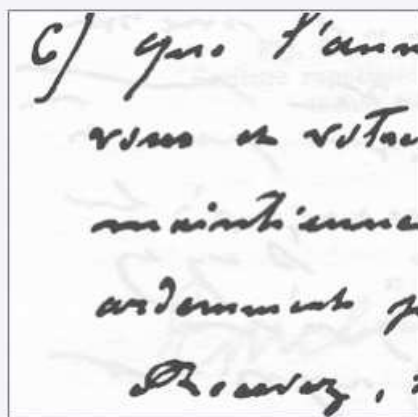 C) que l'ann
vous et votre
maintienne
ardemment p
Recevez,